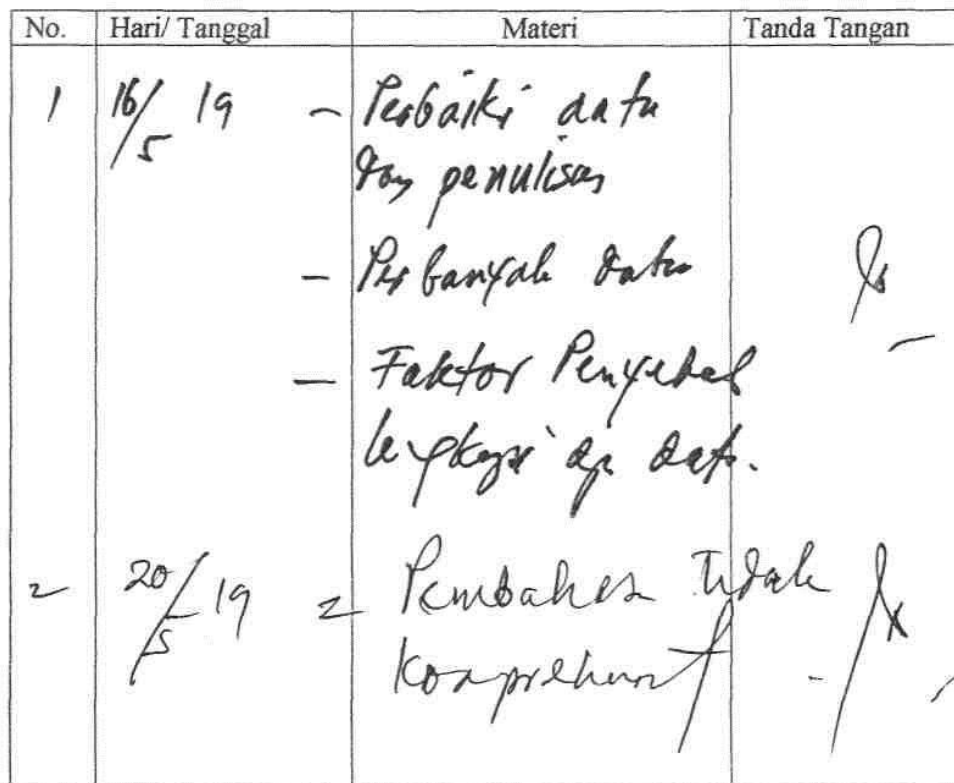 No. Hari/ Tanggal Materi Tanda Tangan
1 16/5 19 - Perbaiki data
dan penulisan
- Perbanyak data
- Faktor Penyebab
lengkapi dg data.
2 20/5 19 Pembahasan Tidak
Komprehensif